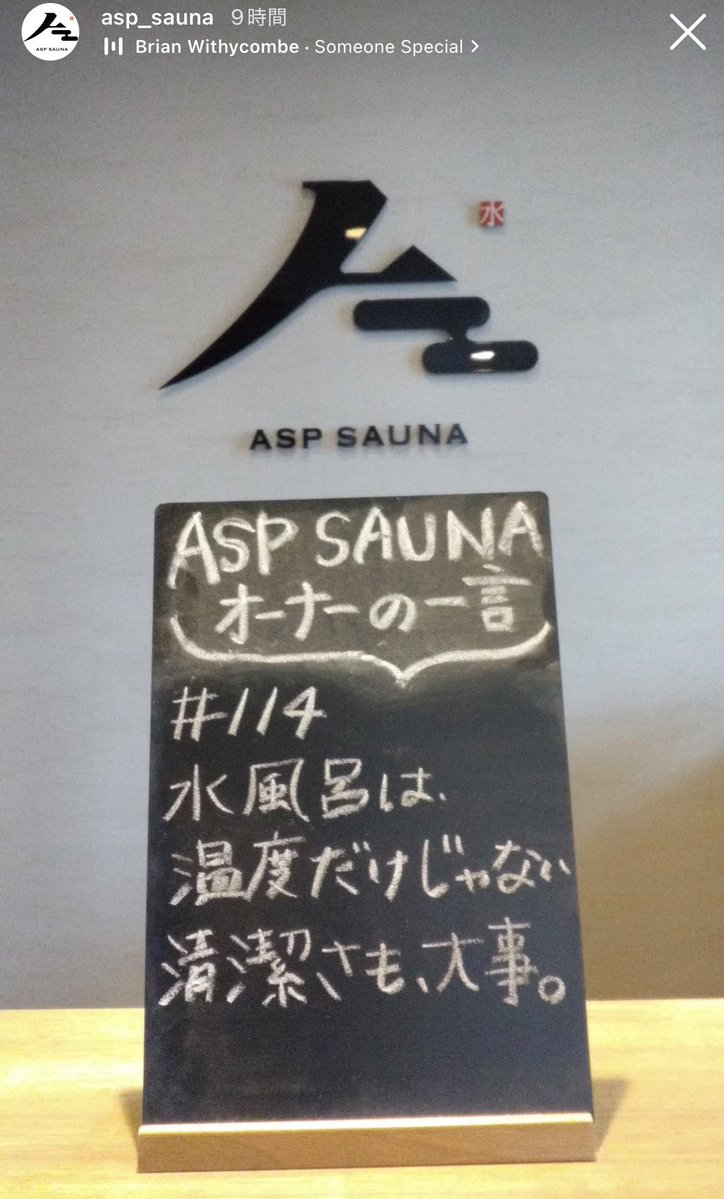 asp_sauna 9時間
Brian Withycombe · Someone Special >
ASP SAUNA
水
ASP SAUNA
ASP SAUNA
オーナーの一言
#114
水風呂は、
温度だけじゃない
清潔さも、大事。